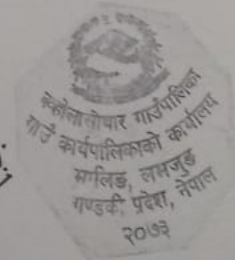 क्व्होलासोथार गाउँपालिका
गाउँ कार्यपालिकाको कार्यालय
मालिङ, लमजुङ
गण्डकी प्रदेश, नेपाल
२०७३